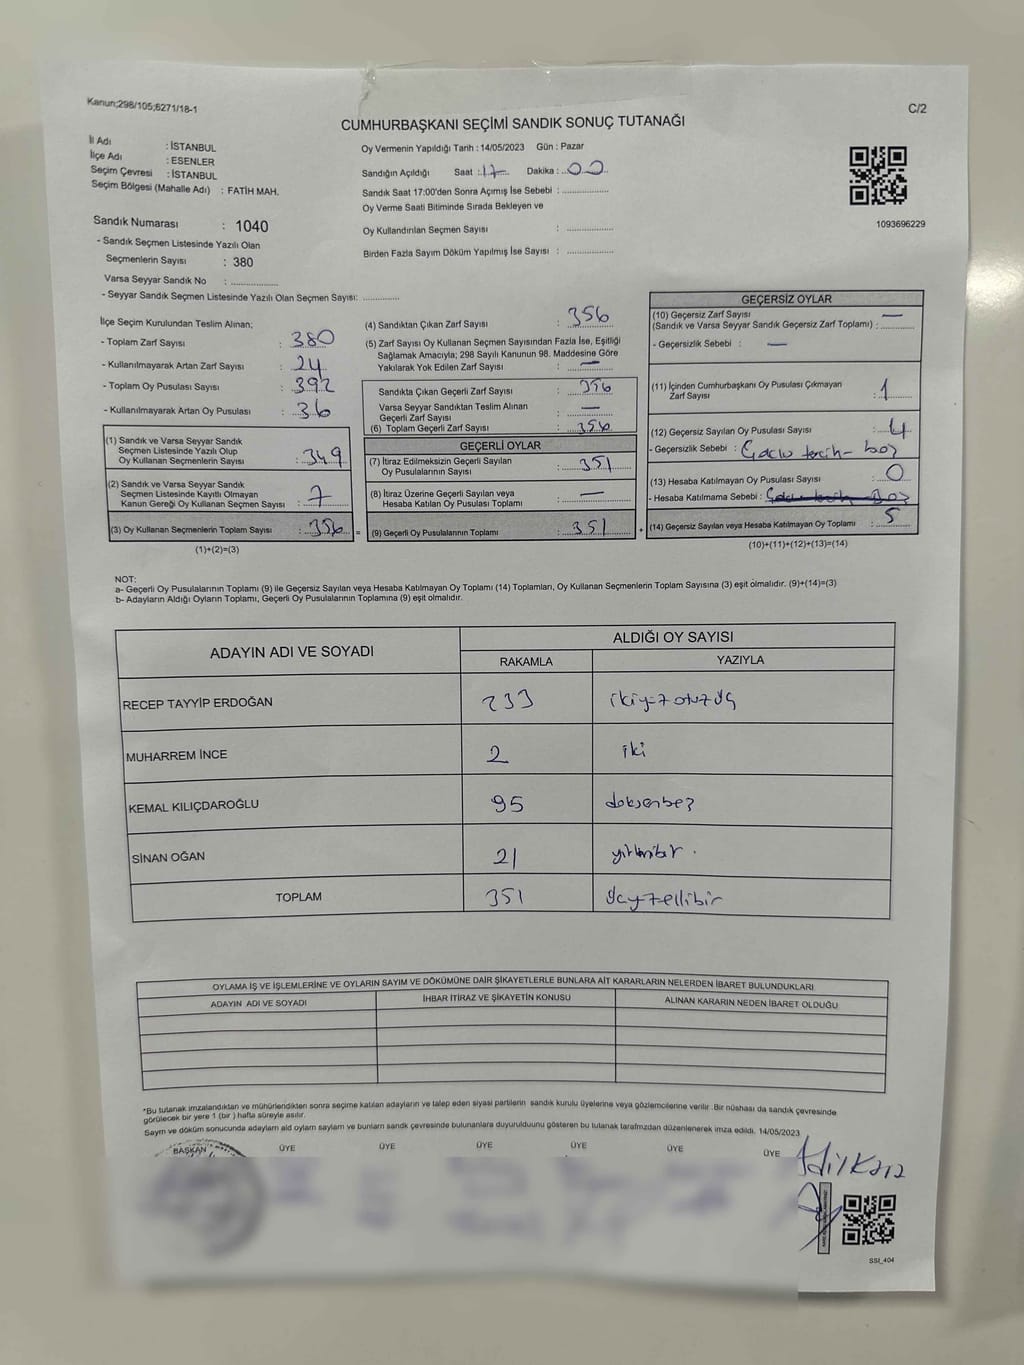 Kanun;298/105;6271/18-1
C/2
CUMHURBAŞKANI SEÇİMİ SANDIK SONUÇ TUTANAĞI
İl Adı : İSTANBUL
İlçe Adı : ESENLER
Seçim Çevresi : İSTANBUL
Seçim Bölgesi (Mahalle Adı) : FATİH MAH.
Oy Vermenin Yapıldığı Tarih : 14/05/2023 Gün : Pazar
Sandığın Açıldığı Saat : 17 Dakika : 00
Sandık Saat 17:00'den Sonra Açımış İse Sebebi :
Oy Verme Saati Bitiminde Sırada Bekleyen ve
Oy Kullandırılan Seçmen Sayısı :
Birden Fazla Sayım Döküm Yapılmış İse Sayısı :
1093696229
Sandık Numarası : 1040
- Sandık Seçmen Listesinde Yazılı Olan
Seçmenlerin Sayısı : 380
Varsa Seyyar Sandık No :
- Seyyar Sandık Seçmen Listesinde Yazılı Olan Seçmen Sayısı:
İlçe Seçim Kurulundan Teslim Alınan;
- Toplam Zarf Sayısı : 380
- Kullanılmayarak Artan Zarf Sayısı : 24
- Toplam Oy Pusulası Sayısı : 392
- Kullanılmayarak Artan Oy Pusulası : 36
(1) Sandık ve Varsa Seyyar Sandık
Seçmen Listesinde Yazılı Olup
Oy Kullanan Seçmenlerin Sayısı : 349
(2) Sandık ve Varsa Seyyar Sandık
Seçmen Listesinde Kayıtlı Olmayan
Kanun Gereği Oy Kullanan Seçmen Sayısı : 7
(3) Oy Kullanan Seçmenlerin Toplam Sayısı : 356 =
(1)+(2)=(3)
(4) Sandıktan Çıkan Zarf Sayısı : 356
(5) Zarf Sayısı Oy Kullanan Seçmen Sayısından Fazla İse, Eşitliği
Sağlamak Amacıyla; 298 Sayılı Kanunun 98. Maddesine Göre
Yakılarak Yok Edilen Zarf Sayısı : —
Sandıkta Çıkan Geçerli Zarf Sayısı : 356
Varsa Seyyar Sandıktan Teslim Alınan
Geçerli Zarf Sayısı : —
(6) Toplam Geçerli Zarf Sayısı : 356
GEÇERLİ OYLAR
(7) İtiraz Edilmeksizin Geçerli Sayılan
Oy Pusulalarının Sayısı : 351
(8) İtiraz Üzerine Geçerli Sayılan veya
Hesaba Katılan Oy Pusulası Toplamı : —
(9) Geçerli Oy Pusulalarının Toplamı : 351 +
GEÇERSİZ OYLAR
(10) Geçersiz Zarf Sayısı —
(Sandık ve Varsa Seyyar Sandık Geçersiz Zarf Toplamı) :
- Geçersizlik Sebebi : —
(11) İçinden Cumhurbaşkanı Oy Pusulası Çıkmayan
Zarf Sayısı : 1
(12) Geçersiz Sayılan Oy Pusulası Sayısı : 4
- Geçersizlik Sebebi : Çoklu tercih - boş
(13) Hesaba Katılmayan Oy Pusulası Sayısı : 0
- Hesaba Katılmama Sebebi :
(14) Geçersiz Sayılan veya Hesaba Katılmayan Oy Toplamı : 5
(10)+(11)+(12)+(13)=(14)
NOT:
a- Geçerli Oy Pusulalarının Toplamı (9) ile Geçersiz Sayılan veya Hesaba Katılmayan Oy Toplamı (14) Toplamları, Oy Kullanan Seçmenlerin Toplam Sayısına (3) eşit olmalıdır. (9)+(14)=(3)
b- Adayların Aldığı Oyların Toplamı, Geçerli Oy Pusulalarının Toplamına (9) eşit olmalıdır.
ADAYIN ADI VE SOYADI ALDIĞI OY SAYISI
RAKAMLA YAZIYLA
RECEP TAYYİP ERDOĞAN 233 ikiyüzotuzüç
MUHARREM İNCE 2 iki
KEMAL KILIÇDAROĞLU 95 doksanbeş
SİNAN OĞAN 21 yirmibir.
TOPLAM 351 üçyüzellibir
OYLAMA İŞ VE İŞLEMLERİNE VE OYLARIN SAYIM VE DÖKÜMÜNE DAİR ŞİKAYETLERLE BUNLARA AİT KARARLARIN NELERDEN İBARET BULUNDUKLARI
ADAYIN ADI VE SOYADI İHBAR İTİRAZ VE ŞİKAYETİN KONUSU ALINAN KARARIN NEDEN İBARET OLDUĞU
*Bu tutanak imzalandıktan ve mühürlendikten sonra seçime katılan adayların ve talep eden siyasi partilerin sandık kurulu üyelerine veya gözlemcilerine verilir. Bir nüshası da sandık çevresinde
görülecek bir yere 1 (bir ) hafta süreyle asılır.
Sayım ve döküm sonucunda adayların ald oyların sayıları ve bunların sandık çevresinde bulunanlara duyurulduunu gösteren bu tutanak tarafımızdan düzenlenerek imza edildi. 14/05/2023
BAŞKAN ÜYE ÜYE ÜYE ÜYE ÜYE ÜYE
SSI_404